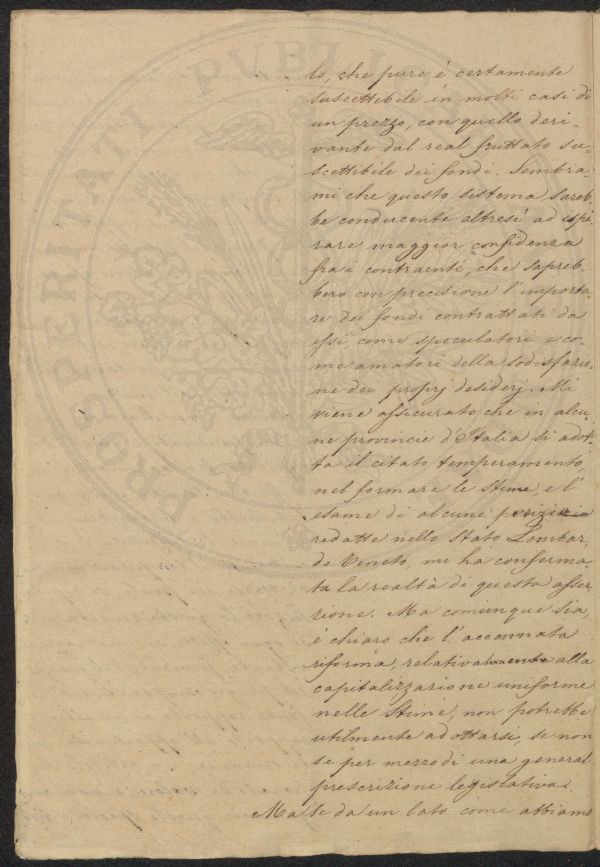 lo, che pure è certamente
suscettibile in molti casi di
un prezzo, con quello deri-
vante dal real fruttato su-
scettibile dei fondi. Sembra-
mi che questo sistema sareb-
be conducente altresì ad ispi-
rare maggior confidenza
fra i contraenti, che sapreb-
bero con precisione l'importa-
re dei fondi contrattati da
essi, come speculatori e co-
me amatori della sodisfazio-
ne dei proprj desiderj. Mi
viene assicurato che in alcu-
ne provincie d'Italia si adot-
ta il citato temperamento
nel formare le stime, e l'
esame di alcune perizie
redatte nello Stato Lombar-
do Veneto, mi ha conferma-
ta la realtà di questa asser-
zione. Ma comunque sia,
è chiaro che l'accennata
riforma, relativamente alla
capitalizzazione uniforme
nelle Stime, non potrebbe
utilmente adottarsi, se non
se per mezzo di una general
prescrizione legislativa.
Ma se da un lato come abbiamo
PROSPERITATI PUBLI